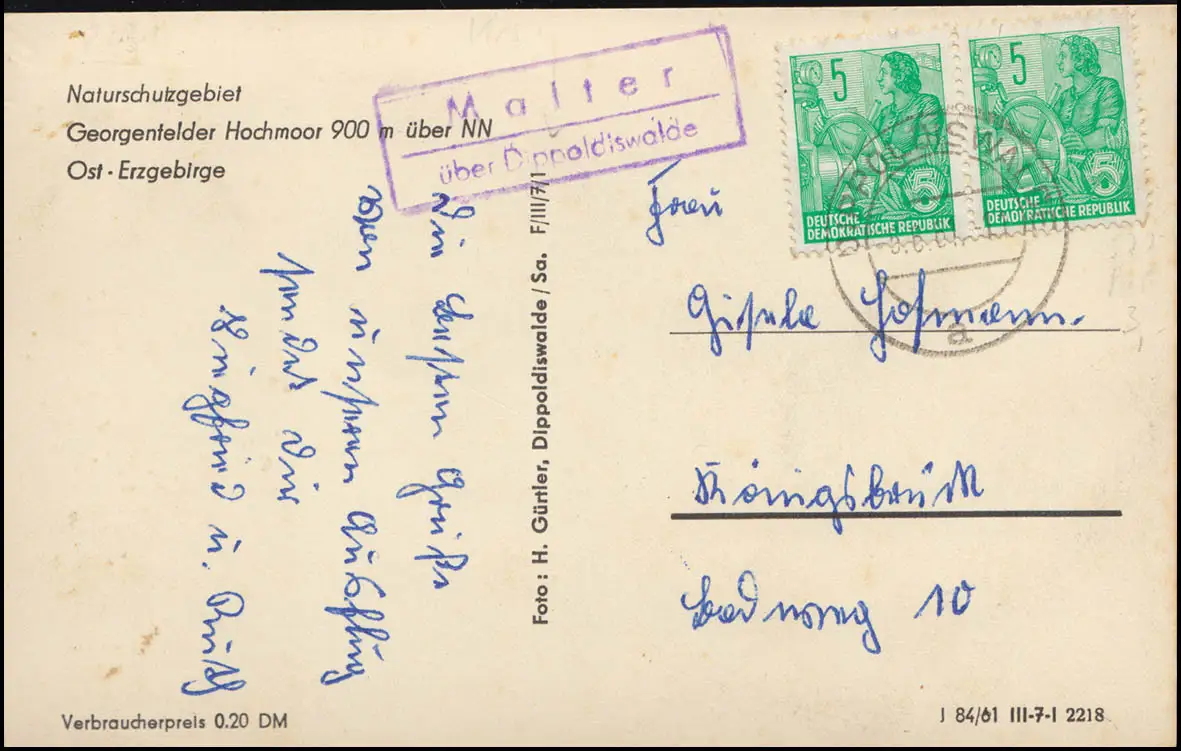 Naturschutzgebiet
Georgenfelder Hochmoor 900 m über NN
Ost-Erzgebirge
Malter
über Dippoldiswalde
5
DEUTSCHE
DEMOKRATISCHE REPUBLIK
5
DEUTSCHE
DEMOKRATISCHE REPUBLIK
DIPPOLDISWALDE
a
Die besten Grüße
von unserem Ausflug
sendet dir
Siegfried u. Ruth
Foto: H. Gürtler, Dippoldiswalde/Sa. F/III/7/1
Frau
Gisela Hofmann.
Königsbrück
Badweg 10
Verbraucherpreis 0.20 DM
J 84/61 III-7-I 2218